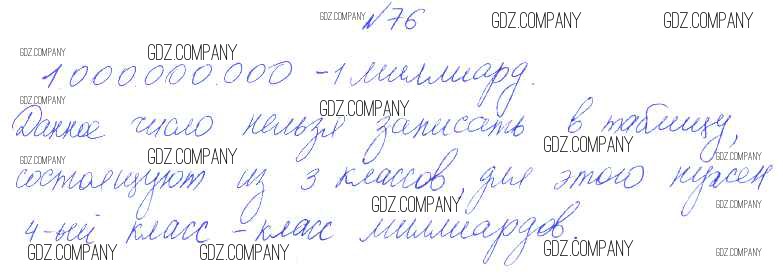 GDZ.COMPANY №76 GDZ.COMPANY GDZ.COMPANY
GDZ.COMPANY GDZ.COMPANY
1.000.000.000 - 1 миллиард.
GDZ.COMPANY GDZ.COMPANY
Данное число нельзя записать в таблицу,
GDZ.COMPANY GDZ.COMPANY GDZ.COMPANY GDZ.COMPANY
состоящуют из 3 классов, для этого нужен
GDZ.COMPANY GDZ.COMPANY GDZ.COMPANY
4-ый класс - класс миллиардов.
GDZ.COMPANY GDZ.COMPANY GDZ.COMPANY GDZ.COMPANY